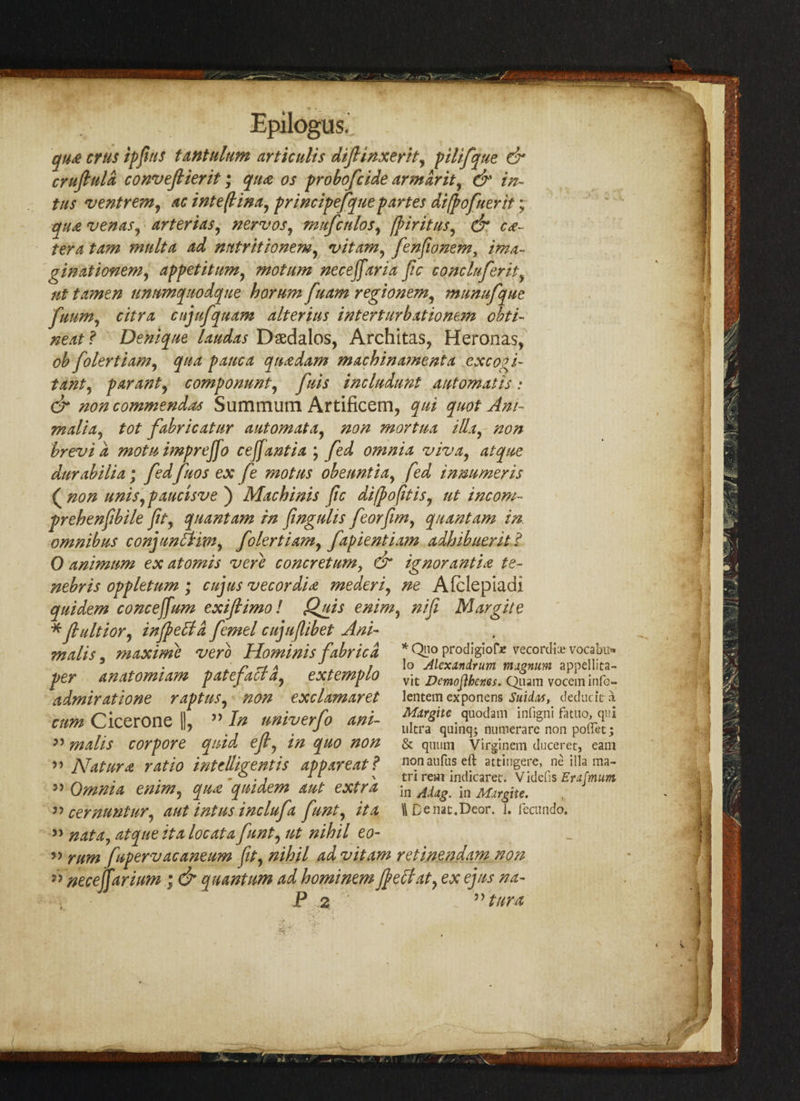 Epilogus.
quæ crus ipſius tantulum articulis diſtinxerit, piliſque &
cruſtulâ conveſtierit; quæ os proboſcide armârit, & in-
tus ventrem, ac inteſtina, principeſque partes diſpoſuerit;
quæ venas, arterias, nervos, muſculos, ſpiritus, & cæ-
tera tam multa ad nutritionem, vitam, ſenſionem, ima-
ginationem, appetitum, motum neceſſaria ſic concluſerit,
ut tamen unumquodque horum ſuam regionem, munuſque
ſuum, citra cujuſquam alterius interturbationem obti-
neat? Denique laudas Dædalos, Architas, Heronas,
ob ſolertiam, qua pauca quædam machinamenta excogi-
tant, parant, componunt, ſuis includunt automatis:
& non commendas Summum Artificem, qui quot Ani-
malia, tot fabricatur automata, non mortua illa, non
brevi à motu impreſſo ceſſantia; ſed omnia viva, atque
durabilia; ſed ſuos ex ſe motus obeuntia, ſed innumeris
(non unis, paucisve) Machinis ſic diſpoſitis, ut incom-
prehenſibile ſit, quantam in ſingulis ſeorſim, quantam in
omnibus conjunctim, ſolertiam, ſapientiam adhibuerit?
O animum ex atomis verè concretum, & ignorantiæ te-
nebris oppletum; cujus vecordiæ mederi, ne Aſclepiadi
quidem conceſſum exiſtimo! Quis enim, niſi Margite
* ſtultior, inſpectâ ſemel cujuſlibet Ani-
malis, maximè verò Hominis fabricâ
per anatomiam patefactâ, extemplo
admiratione raptus, non exclamaret
cum Cicerone ||, ” In univerſo ani-
” malis corpore quid eſt, in quo non
” Naturæ ratio intelligentis appareat?
” Omnia enim, quæ quidem aut extrà
” cernuntur, aut intus incluſa ſunt, ita
” nata, atque ita locata ſunt, ut nihil eo-
” rum ſupervacaneum ſit, nihil ad vitam retinendam non
” neceſſarium; & quantum ad hominem ſpectat, ex ejus na-
* Quo prodigioſæ vecordiæ vocabu-
lo Alexandrum magnum appellita-
vit Demoſthenes. Quam vocem inſo-
lentem exponens Suidas, deducit à
Margite quodam inſigni fatuo, qui
ultra quinq; numerare non poſſet;
& quum Virginem duceret, eam
non auſus eſt attingere, nè illa ma-
tri rem indicaret. Videſis Eraſmum
in Adag. in Margite.
|| De nat. Deor. l. ſecundo.
P 2 ” tura